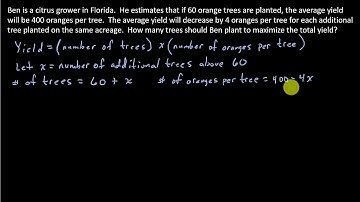 Ben is a citrus grower in Florida. He estimates that if 60 orange trees are planted, the average yield
will be 400 oranges per tree. The average yield will decrease by 4 oranges per tree for each additional
tree planted on the same acreage. How many trees should Ben plant to maximize the total yield?
Yield = (number of trees) x (number of oranges per tree)
Let x = number of additional trees above 60
# of trees = 60 + x # of oranges per tree = 400 - 4x